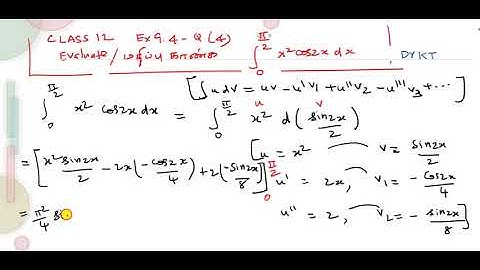 CLASS 12 Ex 9.4 - Q (4)
Evaluate / மதிப்பு காண்க ∫₀^(π/2) x² cos2x dx , DYKT
[∫u dv = uv - u'v₁ + u''v₂ - u'''v₃ + ...]
∫₀^(π/2) x² cos2x dx = ∫₀^(π/2) x² d(sin2x/2)
u v
= [x² sin2x/2 - 2x(-cos2x/4) + 2(-sin2x/8)]₀^(π/2)
[u = x² v = sin2x/2
u' = 2x, v₁ = -cos2x/4
u'' = 2, v₂ = -sin2x/8]
= π²/4 si